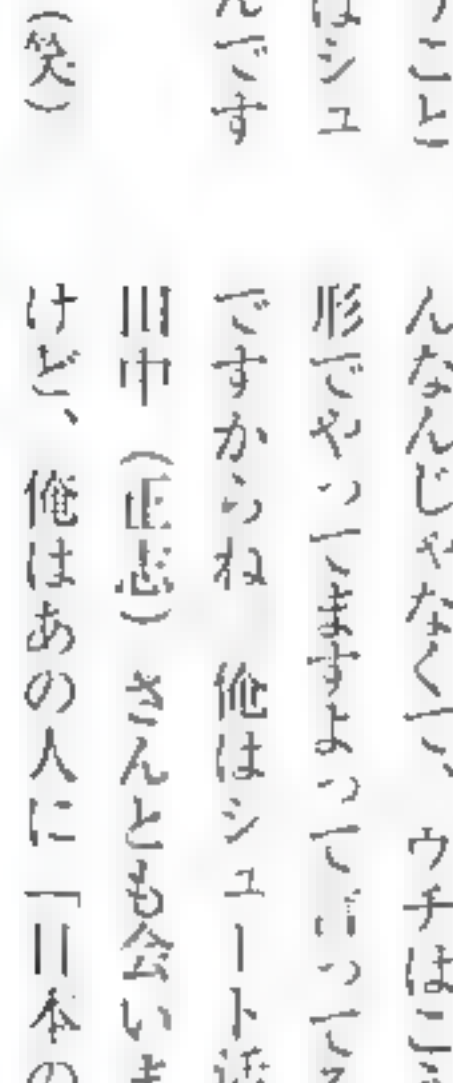 うこと
はシュ
んです
（笑）
んなんじゃなくて、ウチはこう
形でやってますよって言ってる
ですからね　俺はシュート活
田中（正志）さんとも会いま
けど、俺はあの人に「日本の